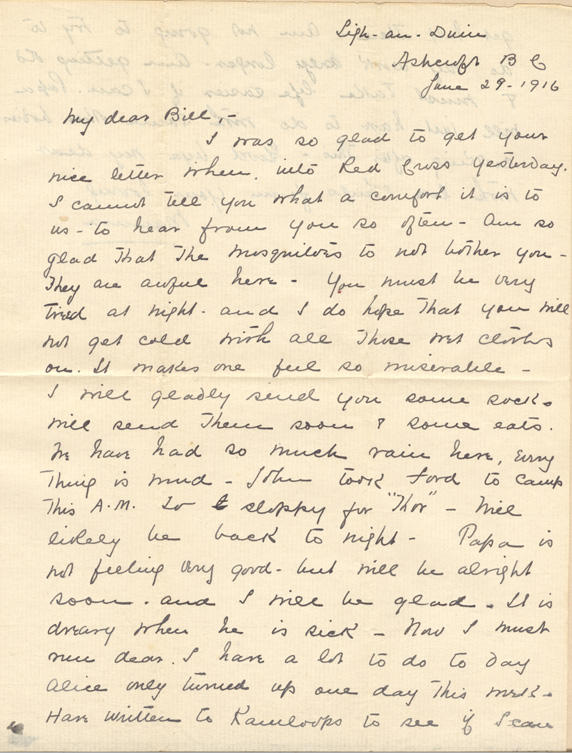 Tigh-an-Duin
Ashcroft B C
June 29-1916
My dear Bill,-
I was so glad to get your
nice letter when, into Red Cross yesterday.
I cannot tell you what a comfort it is to
us - to hear from you so often - Am so
glad That The mosquitoes to not bother you -
They are awful here - You must be very
tired at night - and I do hope That you will
not get cold with all Those wet clothes
on. It makes one feel so miserable -
I will gladly send you some socks
will send Them soon & some eats.
We have had so much rain here, Every
Thing is mud - John took Ford to camp
This A.M. so sloppy for "Thor" - Will
likely be back to night - Papa is
not feeling very good - but will be alright
soon - and I will be glad. It is
dreary when he is sick - Now I must
run dear. I have a lot to do to day
Alice only turned up one day This week -
Have written to Kamloops to see if I can